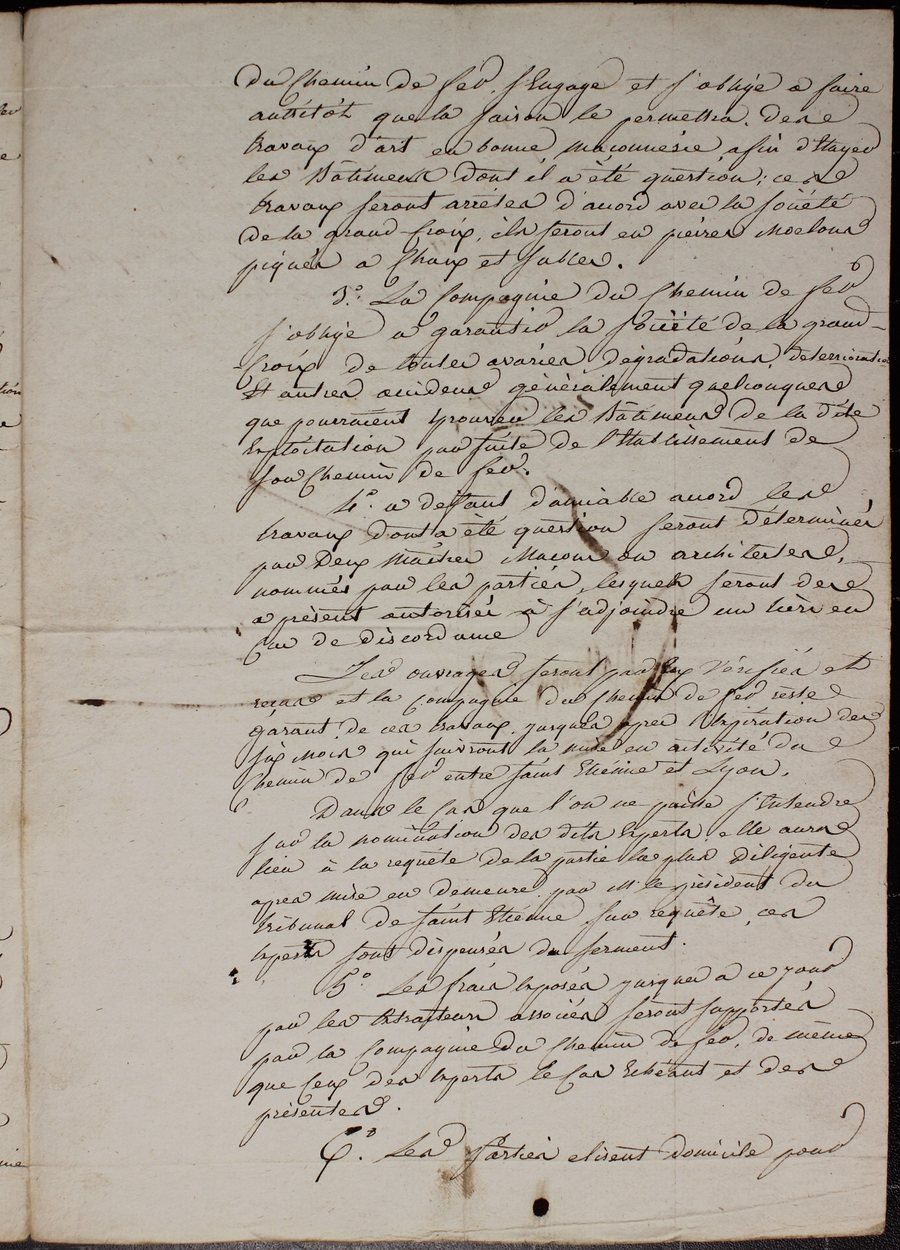 du Chemin de fer, s'Engage et s'oblige a faire
aussitôt que la saison le permettra des
travaux d'art en bonne maconnerie, afin d'Etayer
les Bâtimens dont il a été question; ces
travaux seront arrêtés d'acord avec la société
de la grand Croix, ils seront en pierres Moelons
piqués a Chaux et sables.
3.° La Compagnie du Chemin de fer
s'oblige a garantir la société de la grand-
-Croix de toutes avaries, dégradations, déterioration
Et autres accidens généralement quelconques
que pourraient Eprouver les Bâtimens de la dite
Exploitation par suite de l'Etablissement de
son Chemin de fer.
4.° a défaut d'amiable acord les
travaux dont a été question seront déterminés
par Deux Maitres Macons ou architectes,
nommés par les parties, lesquels seront des
a présent autorisés à s'adjoindre un tiers en
Cas de discordance
Les ouvrages seront par Eux Vérifiés et
reçus et la Compagnie du Chemin de fer reste
garant, de ces travaux jusques apres l'Expiration des
six mois qui suivront la mise en activité du
Chemin de fer entre saint Etiénne et Lyon.
Dans le Cas que l'on ne puisse s'Entendre
sur la nomination des dits Experts, elle aura
lieu à la requête de la partie la plus diligente
apres mise en demeure, par Mr le président du
tribunal de saint Etiénne, sur requête, ces
Experts sont dispensés du serment.
5.° Les frais Exposés jusques a ce jour
par les Extracteurs associés seront supportés
par la Compagnie du Chemin de fer, de même
que Ceux des Experts le Cas Echéant et des
présentes.
6.° Les Parties elisent domicile pour